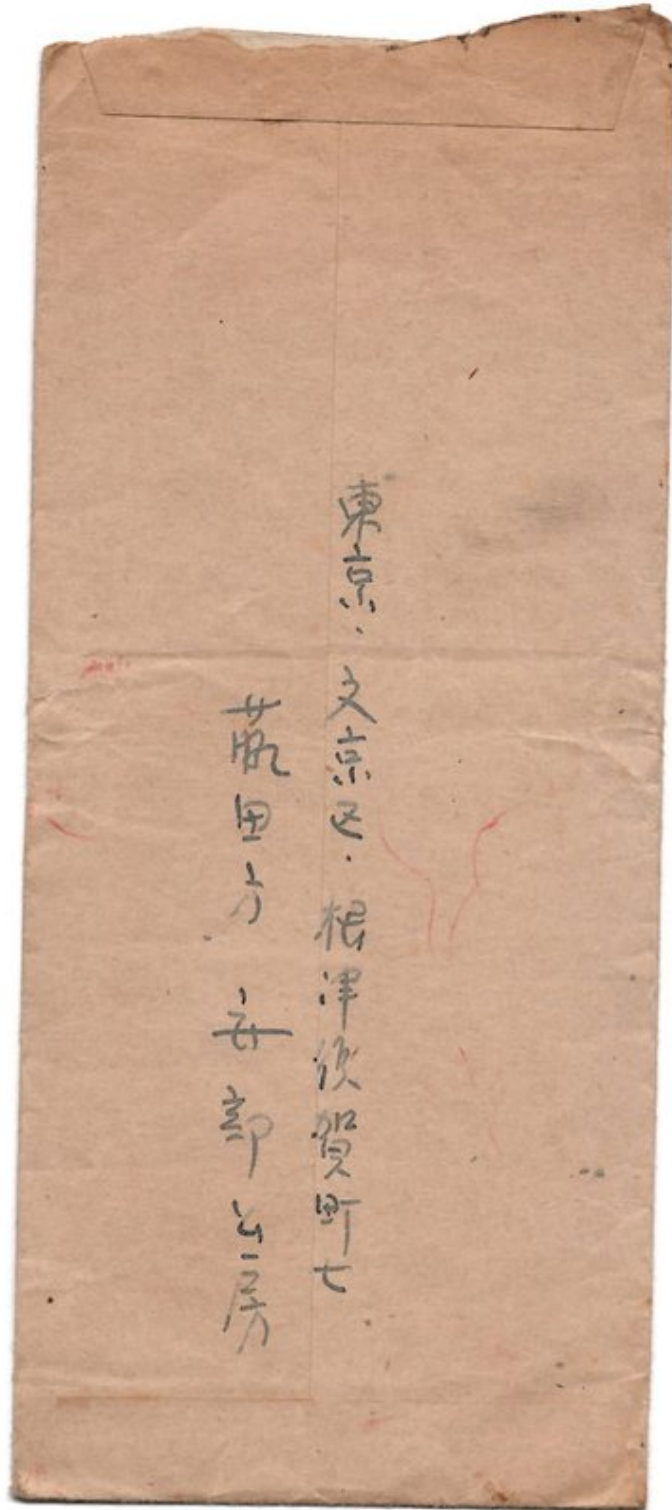 東京・文京区・根津須賀町七
萩田方 安部公房